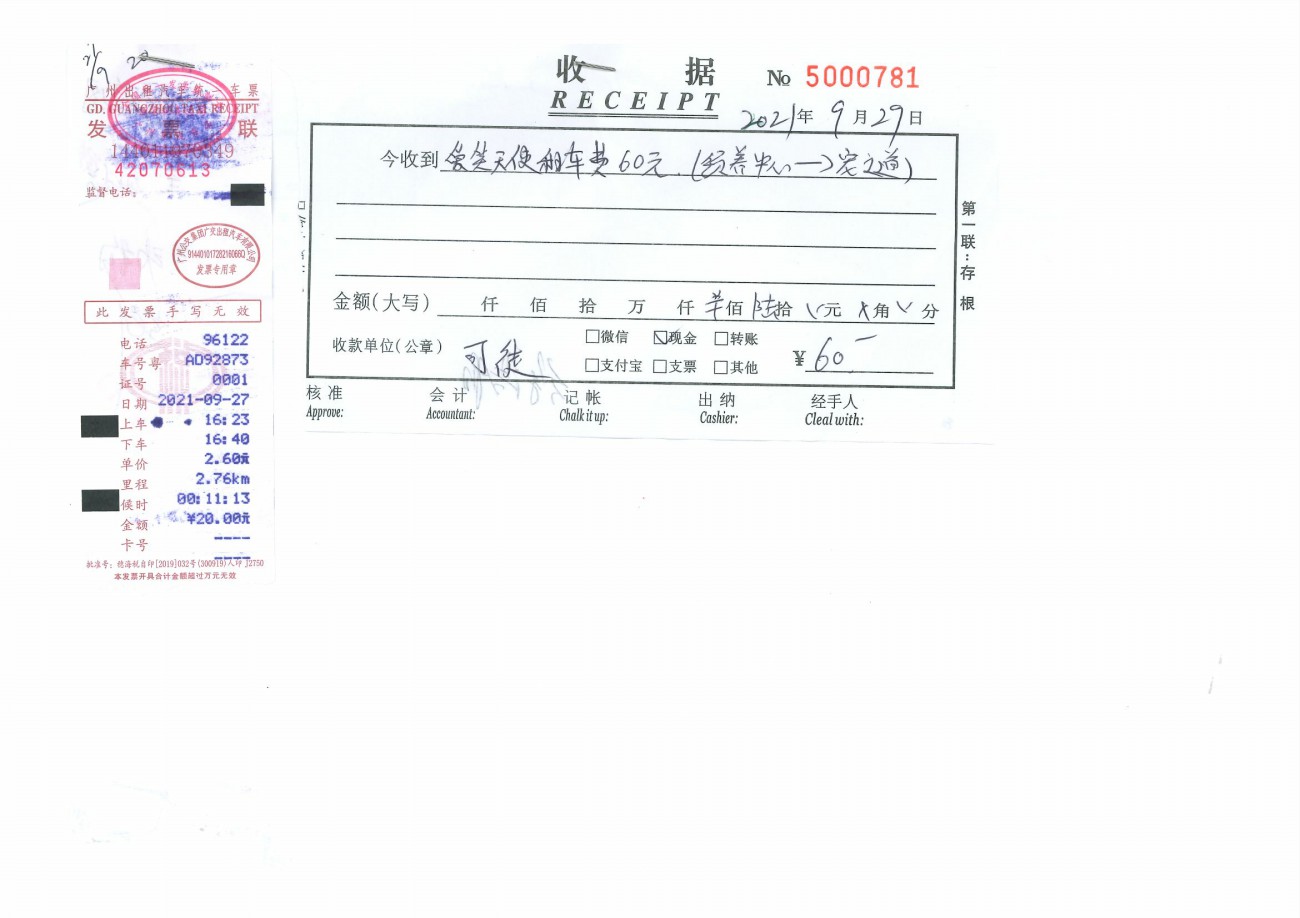 20
广州出租汽车统一车票
GD. GUANGZHOU TAXI RECEIPT
发票联
42070613
监督电话:
广州公交集团广交出租汽车有限公司
91440101728216066Q
发票专用章
此发票手写无效
电话 96122
车号粤 AD92873
证号 0001
日期 2021-09-27
上车 16:23
下车 16:40
单价 2.60元
里程 2.76km
候时 00:11:13
金额 ¥20.00元
卡号 ----
----
批准号: 穗海税自印[2019]032号(300919)人印 J2750
本发票开具合计金额超过万元无效
收 据 № 5000781
RECEIPT
2021年 9月29日
今收到 爱笑天使租车费60元.(中心→之道)
金额(大写) 仟 佰 拾 万 仟 佰 陆拾 元 角 分
收款单位(公章) 可徒
□微信 ☑现金 □转账
□支付宝 □支票 □其他
¥60.-
核准 会计 记帐 出纳 经手人
Approve: Accountant: Chalk it up: Cashier: Cleal with:
第一联:存根